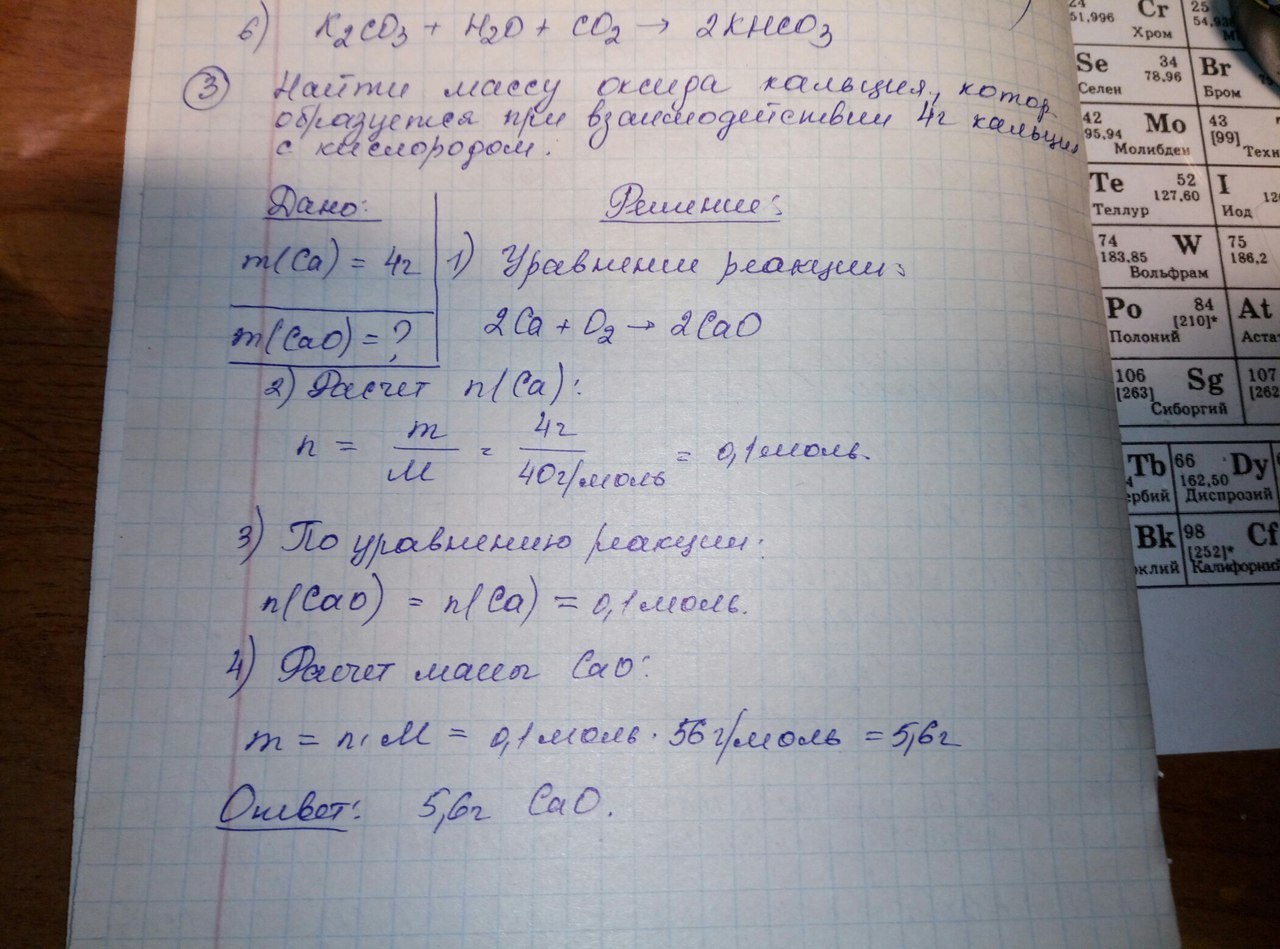 6) K₂CO₃ + H₂O + CO₂ → 2KHCO₃
③ Найти массу оксида кальция, котор.
образуется при взаимодействии 4г кальция
с кислородом.
Дано:
m(Ca) = 4г
m(CaO) = ?
Решение:
1) Уравнение реакции:
2Ca + O₂ → 2CaO
2) Расчет n(Ca):
n = m/M = 4г/40г/моль = 0,1 моль.
3) По уравнению реакции:
n(CaO) = n(Ca) = 0,1 моль.
4) Расчет массы CaO:
m = n · M = 0,1 моль · 56 г/моль = 5,6г
Ответ: 5,6г CaO.
24 Cr 25
51,996 54,938
Хром
Se 34 Br
78,96
Селен Бром
42 Mo 43
95,94 [99]
Молибден Техн
Te 52 I
127,60 12
Теллур Иод
74 W 75
183,85 186,2
Вольфрам
Po 84 At
[210]*
Полоний Аста
106 Sg 107
[263] [262
Сиборгий
Tb 66 Dy
162,50
ербий Диспрозий
Bk 98 Cf
[252]*
клий Калифорний